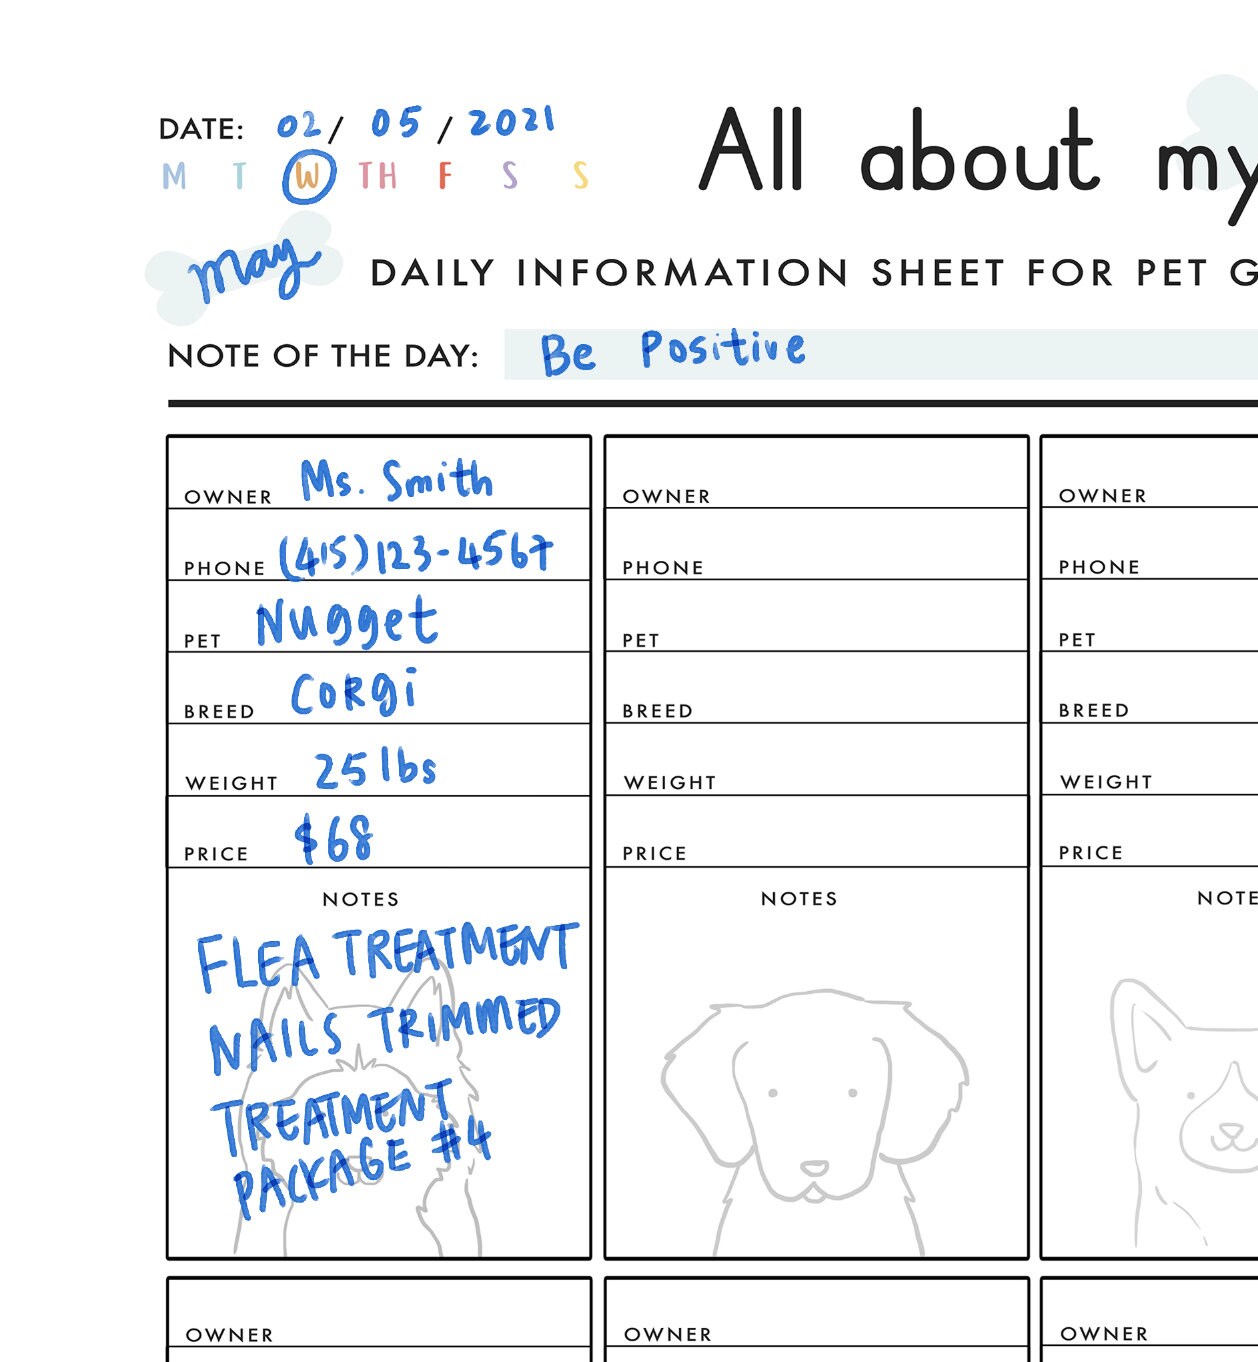 DATE: 02 / 05 / 2021
All about my
M T W TH F S S
may
DAILY INFORMATION SHEET FOR PET G
NOTE OF THE DAY: Be Positive
OWNER Ms. Smith
PHONE (415)123-4567
PET Nugget
BREED CORgi
WEIGHT 25 lbs
PRICE $68
NOTES
FLEA TREATMENT
NAILS TRIMMED
TREATMENT
PACKAGE #4
OWNER
PHONE
PET
BREED
WEIGHT
PRICE
NOTES
OWNER
PHONE
PET
BREED
WEIGHT
PRICE
NOTE
OWNER
OWNER
OWNER